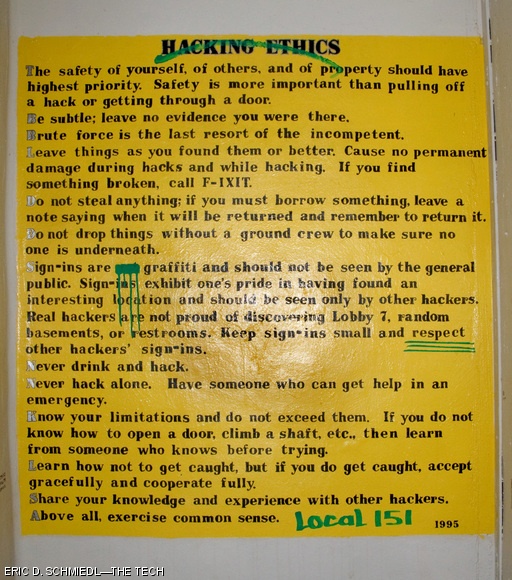 HACKING ETHICS
The safety of yourself, of others, and of property should have
highest priority. Safety is more important than pulling off
a hack or getting through a door.
Be subtle; leave no evidence you were there.
Brute force is the last resort of the incompetent.
Leave things as you found them or better. Cause no permanent
damage during hacks and while hacking. If you find
something broken, call F-IXIT.
Do not steal anything; if you must borrow something, leave a
note saying when it will be returned and remember to return it.
Do not drop things without a ground crew to make sure no
one is underneath.
Sign-ins are graffiti and should not be seen by the general
public. Sign-ins exhibit one's pride in having found an
interesting location and should be seen only by other hackers.
Real hackers are not proud of discovering Lobby 7, random
basements, or restrooms. Keep sign-ins small and respect
other hackers' sign-ins.
Never drink and hack.
Never hack alone. Have someone who can get help in an
emergency.
Know your limitations and do not exceed them. If you do not
know how to open a door, climb a shaft, etc., then learn
from someone who knows before trying.
Learn how not to get caught, but if you do get caught, accept
gracefully and cooperate fully.
Share your knowledge and experience with other hackers.
Above all, exercise common sense. Local 151
1995
ERIC D. SCHMIEDL—THE TECH